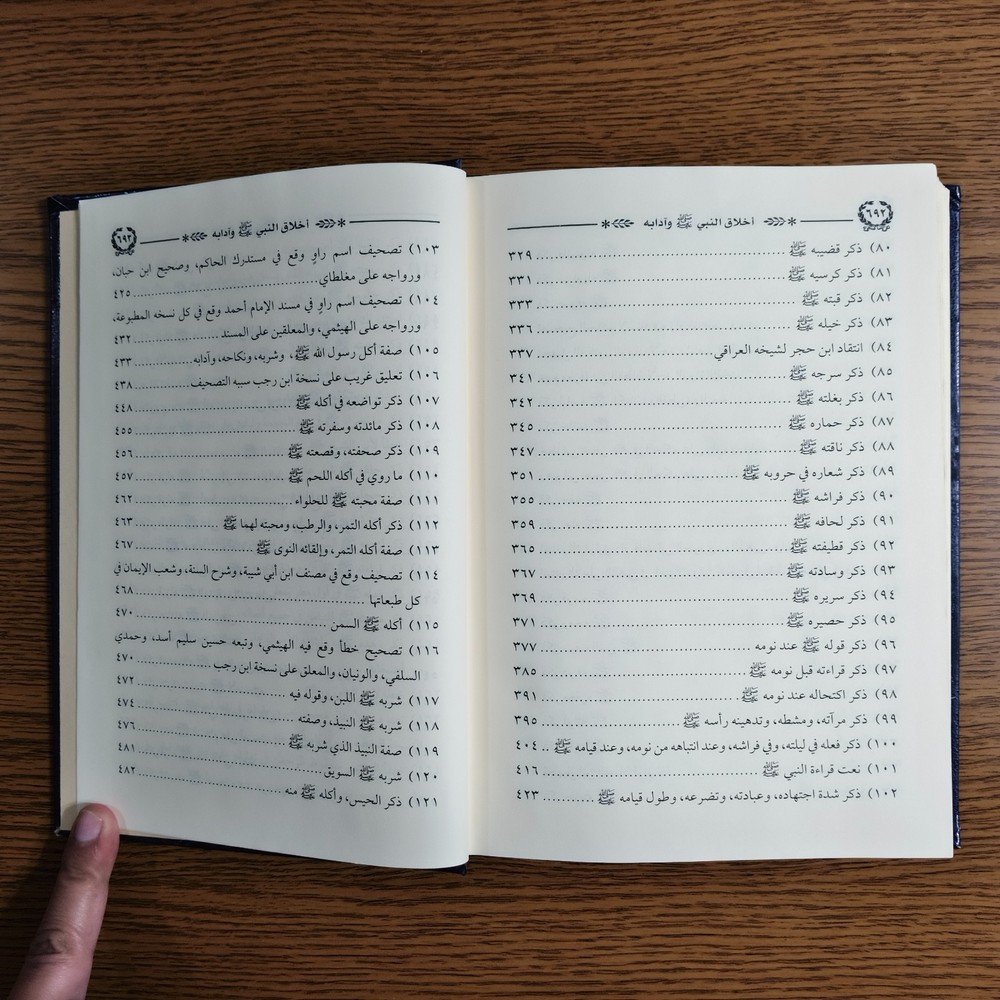 ٦٩٢
أخلاق النبي ﷺ وآدابه
٨٠) ذكر قضيبه ﷺ ........ ٣٢٩
٨١) ذكر كرسيه ﷺ ........ ٣٣١
٨٢) ذكر قبته ﷺ ........ ٣٣٣
٨٣) ذكر خيله ﷺ ........ ٣٣٦
٨٤) انتقاد ابن حجر لشيخه العراقي ........ ٣٣٧
٨٥) ذكر سرجه ﷺ ........ ٣٤١
٨٦) ذكر بغلته ﷺ ........ ٣٤٢
٨٧) ذكر حماره ﷺ ........ ٣٤٥
٨٨) ذكر ناقته ﷺ ........ ٣٤٧
٨٩) ذكر شعاره في حروبه ﷺ ........ ٣٥١
٩٠) ذكر فراشه ﷺ ........ ٣٥٥
٩١) ذكر لحافه ﷺ ........ ٣٥٩
٩٢) ذكر قطيفته ﷺ ........ ٣٦٥
٩٣) ذكر وسادته ﷺ ........ ٣٦٧
٩٤) ذكر سريره ﷺ ........ ٣٦٩
٩٥) ذكر حصيره ﷺ ........ ٣٧١
٩٦) ذكر قوله ﷺ عند نومه ........ ٣٧٧
٩٧) ذكر قراءته قبل نومه ﷺ ........ ٣٨٥
٩٨) ذكر اكتحاله عند نومه ﷺ ........ ٣٩١
٩٩) ذكر مرآته، ومشطه، وتدهينه رأسه ﷺ ........ ٣٩٥
١٠٠) ذكر فعله في ليلته، وفي فراشه، وعند انتباهه من نومه، وعند قيامه ﷺ .. ٤٠٤
١٠١) نعت قراءة النبي ﷺ ........ ٤١٦
١٠٢) ذكر شدة اجتهاده، وعبادته، وتضرعه، وطول قيامه ﷺ ........ ٤٢٣
أخلاق النبي ﷺ وآدابه
٦٩٣
١٠٣) تصحيف اسم راوٍ وقع في مستدرك الحاكم، وصحيح ابن حبان،
ورواجه على مغلطاي ........ ٤٢٥
١٠٤) تصحيف اسم راوٍ في مسند الإمام أحمد وقع في كل نسخه المطبوعة،
ورواجه على الهيثمي، والمعلقين على المسند ........ ٤٣٢
١٠٥) صفة أكل رسول الله ﷺ، وشربه، ونكاحه، وآدابه ........ ٤٣٣
١٠٦) تعليق غريب على نسخة ابن رجب سببه التصحيف ........ ٤٣٨
١٠٧) ذكر تواضعه في أكله ﷺ ........ ٤٤٨
١٠٨) ذكر مائدته وسفرته ﷺ ........ ٤٥٥
١٠٩) ذكر صحفته، وقصعته ﷺ ........ ٤٥٦
١١٠) ما روي في أكله اللحم ﷺ ........ ٤٥٧
١١١) صفة محبته ﷺ للحلواء ........ ٤٦٢
١١٢) ذكر أكله التمر، والرطب، ومحبته لهما ﷺ ........ ٤٦٣
١١٣) صفة أكله التمر، وإلقائه النوى ﷺ ........ ٤٦٧
١١٤) تصحيف وقع في مصنف ابن أبي شيبة، وشرح السنة، وشعب الإيمان في
كل طبعاتها ........ ٤٦٨
١١٥) أكله ﷺ السمن ........ ٤٧٠
١١٦) تصحيح خطأ وقع فيه الهيثمي، وتبعه حسين سليم أسد، وحمدي
السلفي، والونيان، والمعلق على نسخة ابن رجب ........ ٤٧٠
١١٧) شربه ﷺ اللبن، وقوله فيه ........ ٤٧٢
١١٨) شربه ﷺ النبيذ، وصفته ........ ٤٧٤
١١٩) صفة النبيذ الذي شربه ﷺ ........ ٤٧٦
١٢٠) شربه ﷺ السويق ........ ٤٨١
١٢١) ذكر الحيس، وأكله ﷺ منه ........ ٤٨٢